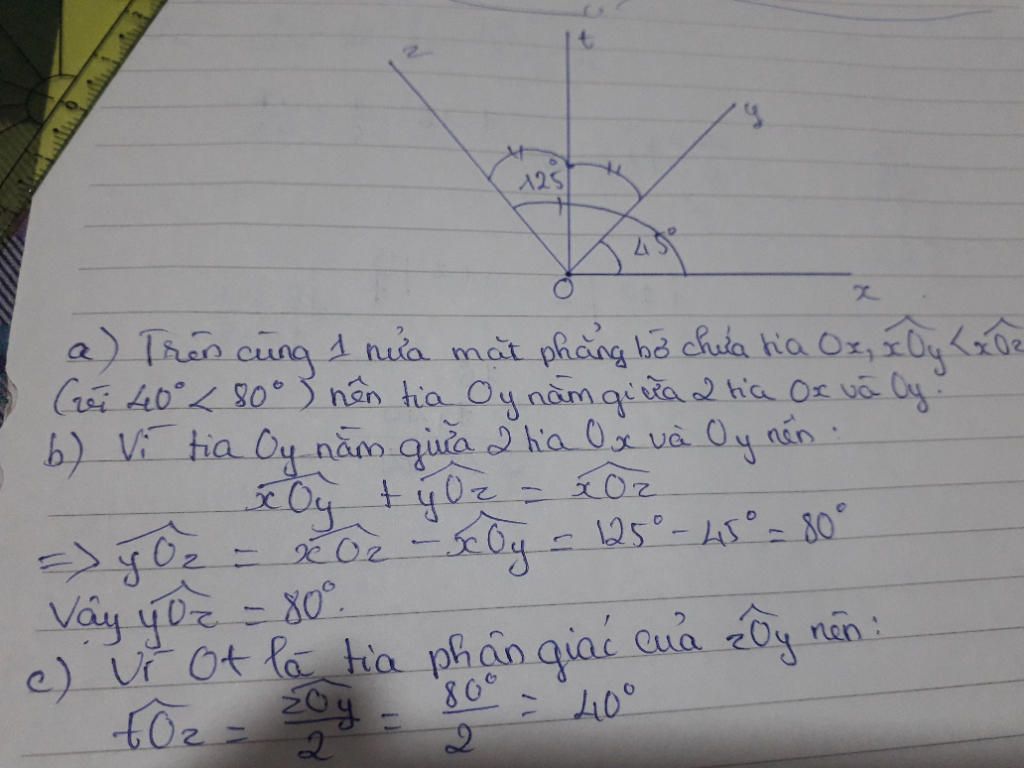 z
t
y
125°
45°
O
x
a) Trên cùng 1 nửa mặt phẳng bờ chứa tia Ox, xÔy < xÔz
(vì 40° < 80°) nên tia Oy nằm giữa 2 tia Ox và Oy.
b) Vì tia Oy nằm giữa 2 tia Ox và Oy nên:
xÔy + yÔz = xÔz
=> yÔz = xÔz - xÔy = 125° - 45° = 80°
Vậy yÔz = 80°.
c) Vì Ot là tia phân giác của zÔy nên:
tÔz = zÔy/2 = 80°/2 = 40°